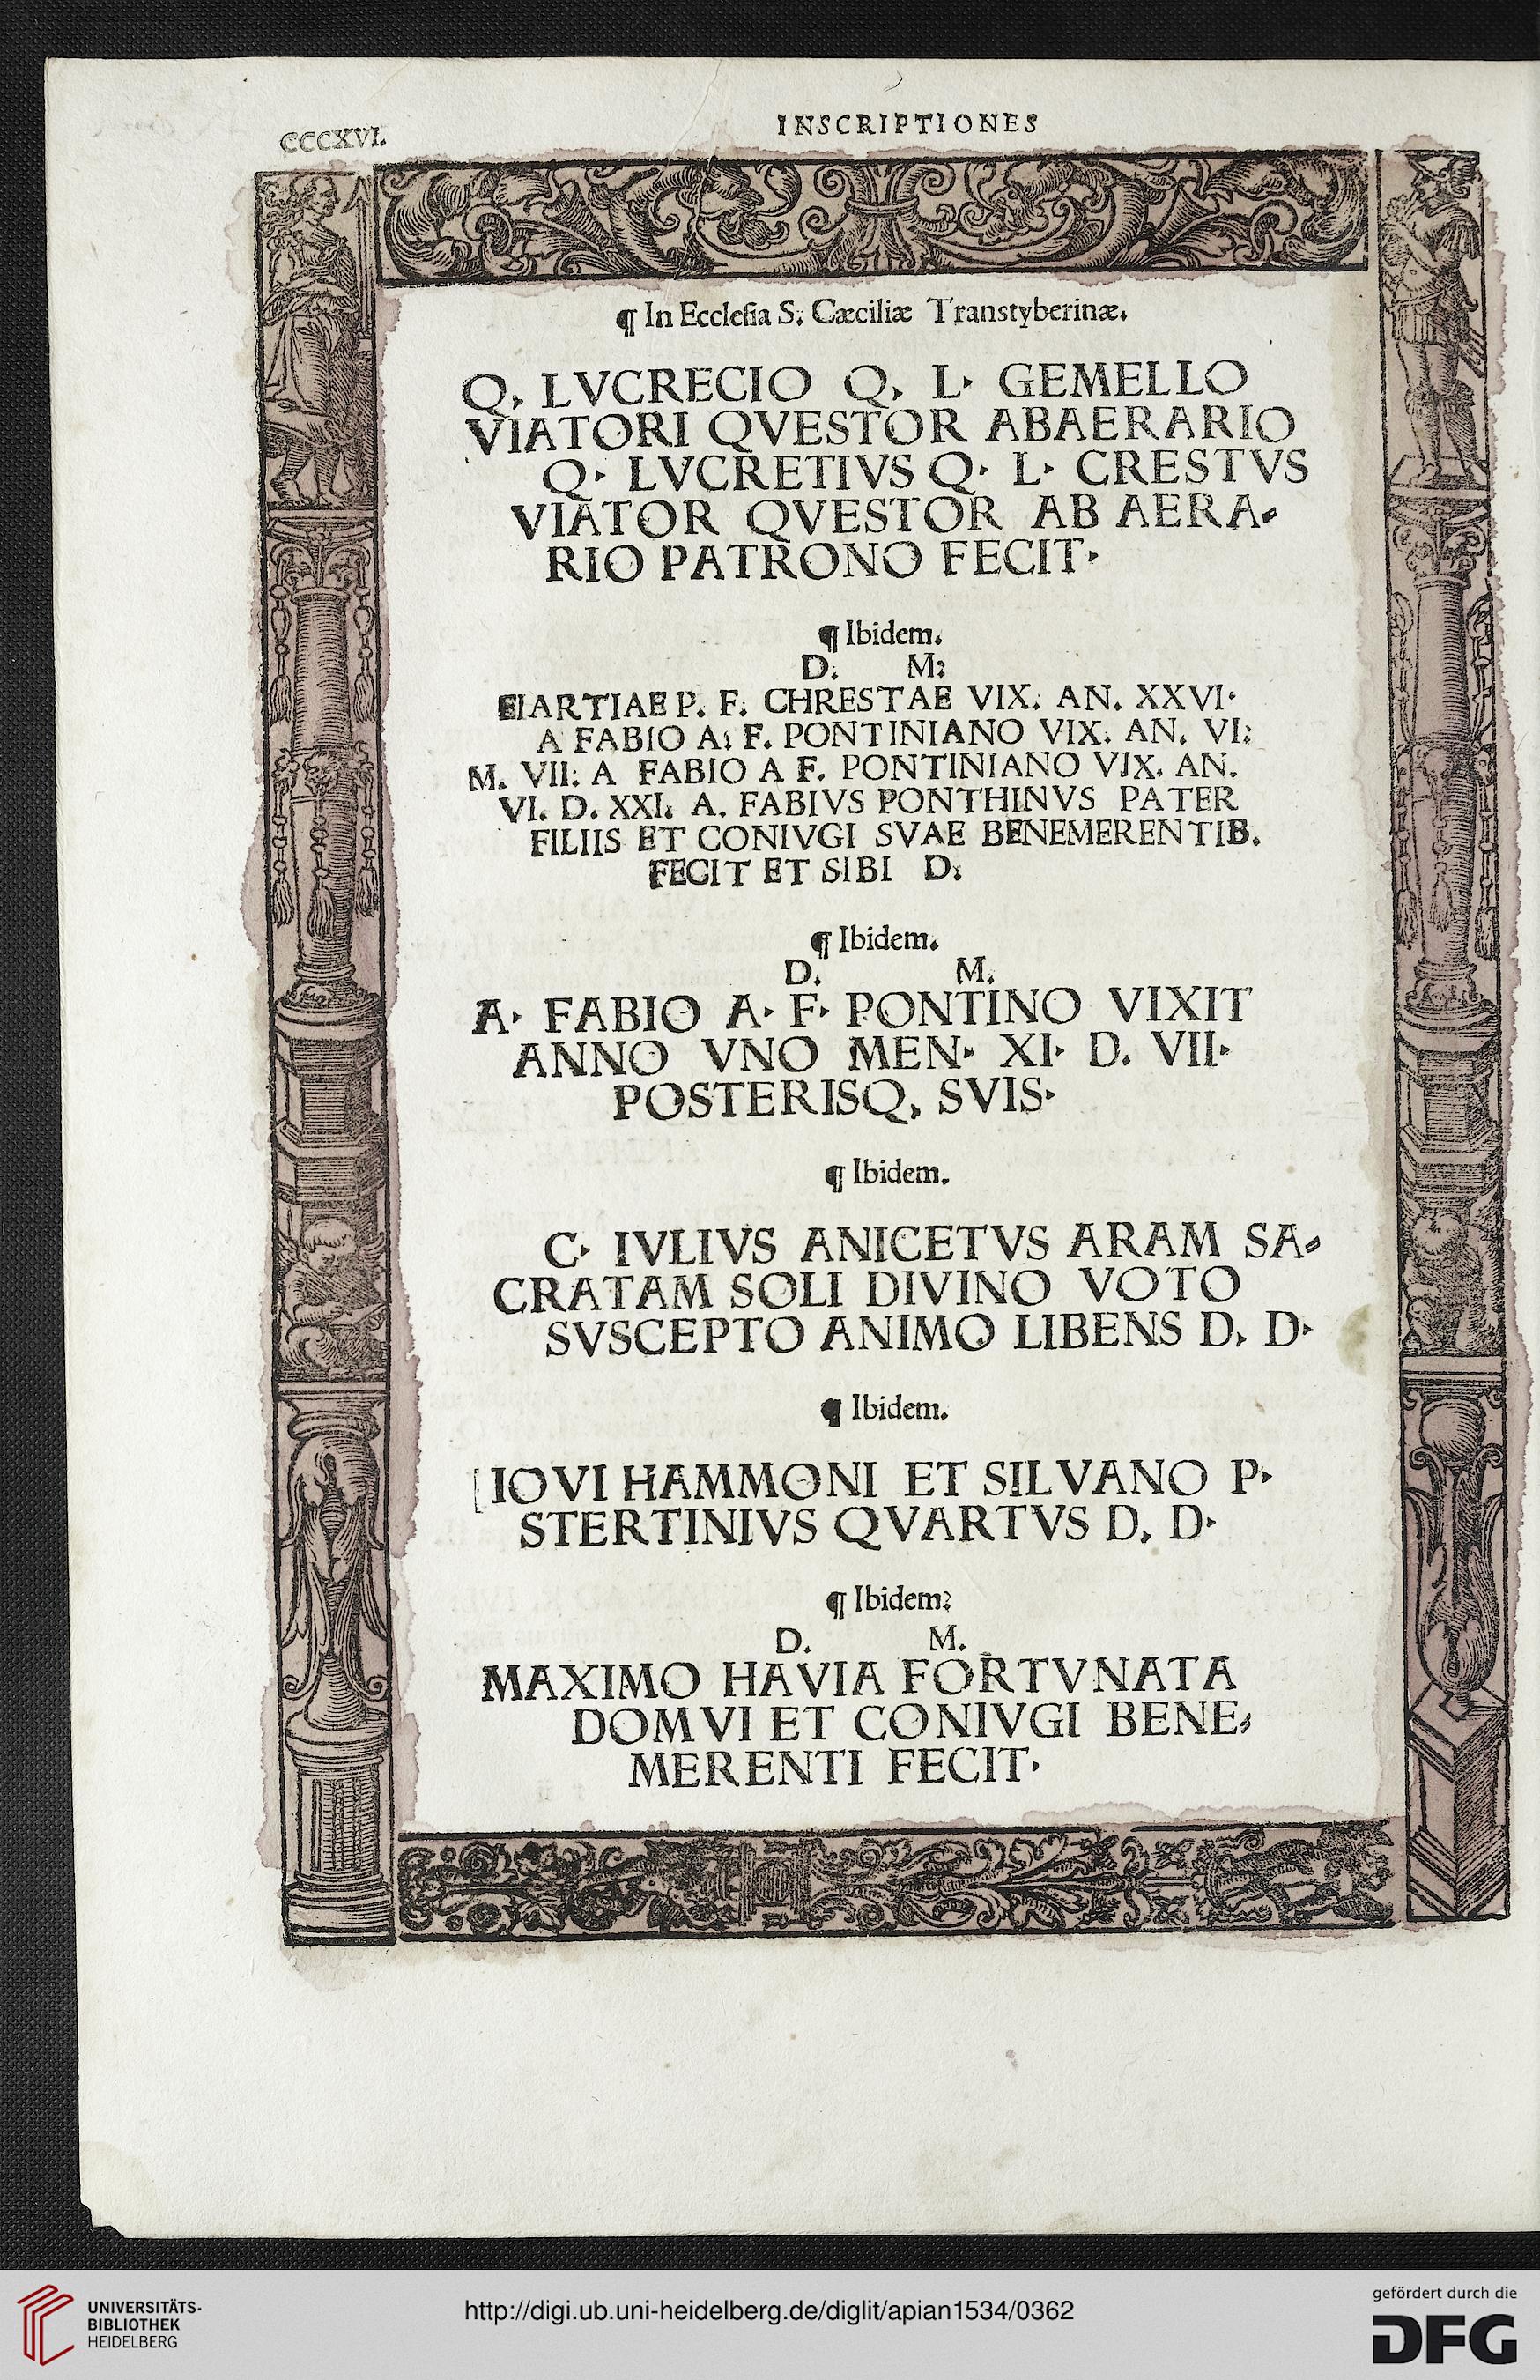 CCCXVI.
INSCRIPTIONES
¶ In Ecclesia S. Cæciliæ Transtyberinæ.
Q. LVCRECIO Q. L. GEMELLO
VIATORI QVESTOR ABAERARIO
Q. LVCRETIVS Q. L. CRESTVS
VIATOR QVESTOR AB AERA-
RIO PATRONO FECIT.
¶ Ibidem.
D. M:
EIARTIAE P. F. CHRESTAE VIX. AN. XXVI.
A FABIO A; F. PONTINIANO VIX. AN. VI:
M. VII: A FABIO A F. PONTINIANO VIX. AN.
VI. D. XXI. A. FABIVS PONTHINVS PATER
FILIIS ET CONIVGI SVAE BENEMERENTIB.
FECIT ET SIBI D.
¶ Ibidem.
D. M.
A. FABIO A. F. PONTINO VIXIT
ANNO VNO MEN. XI. D. VII.
POSTERISQ, SVIS.
¶ Ibidem.
C. IVLIVS ANICETVS ARAM SA-
CRATAM SOLI DIVINO VOTO
SVSCEPTO ANIMO LIBENS D. D.
¶ Ibidem.
[IOVI HAMMONI ET SILVANO P.
STERTINIVS QVARTVS D. D.
¶ Ibidem:
D. M.
MAXIMO HAVIA FORTVNATA
DOMVI ET CONIVGI BENE-
MERENTI FECIT.
UNIVERSITÄTS-
BIBLIOTHEK
HEIDELBERG
http://digi.ub.uni-heidelberg.de/diglit/apian1534/0362
gefördert durch die
DFG